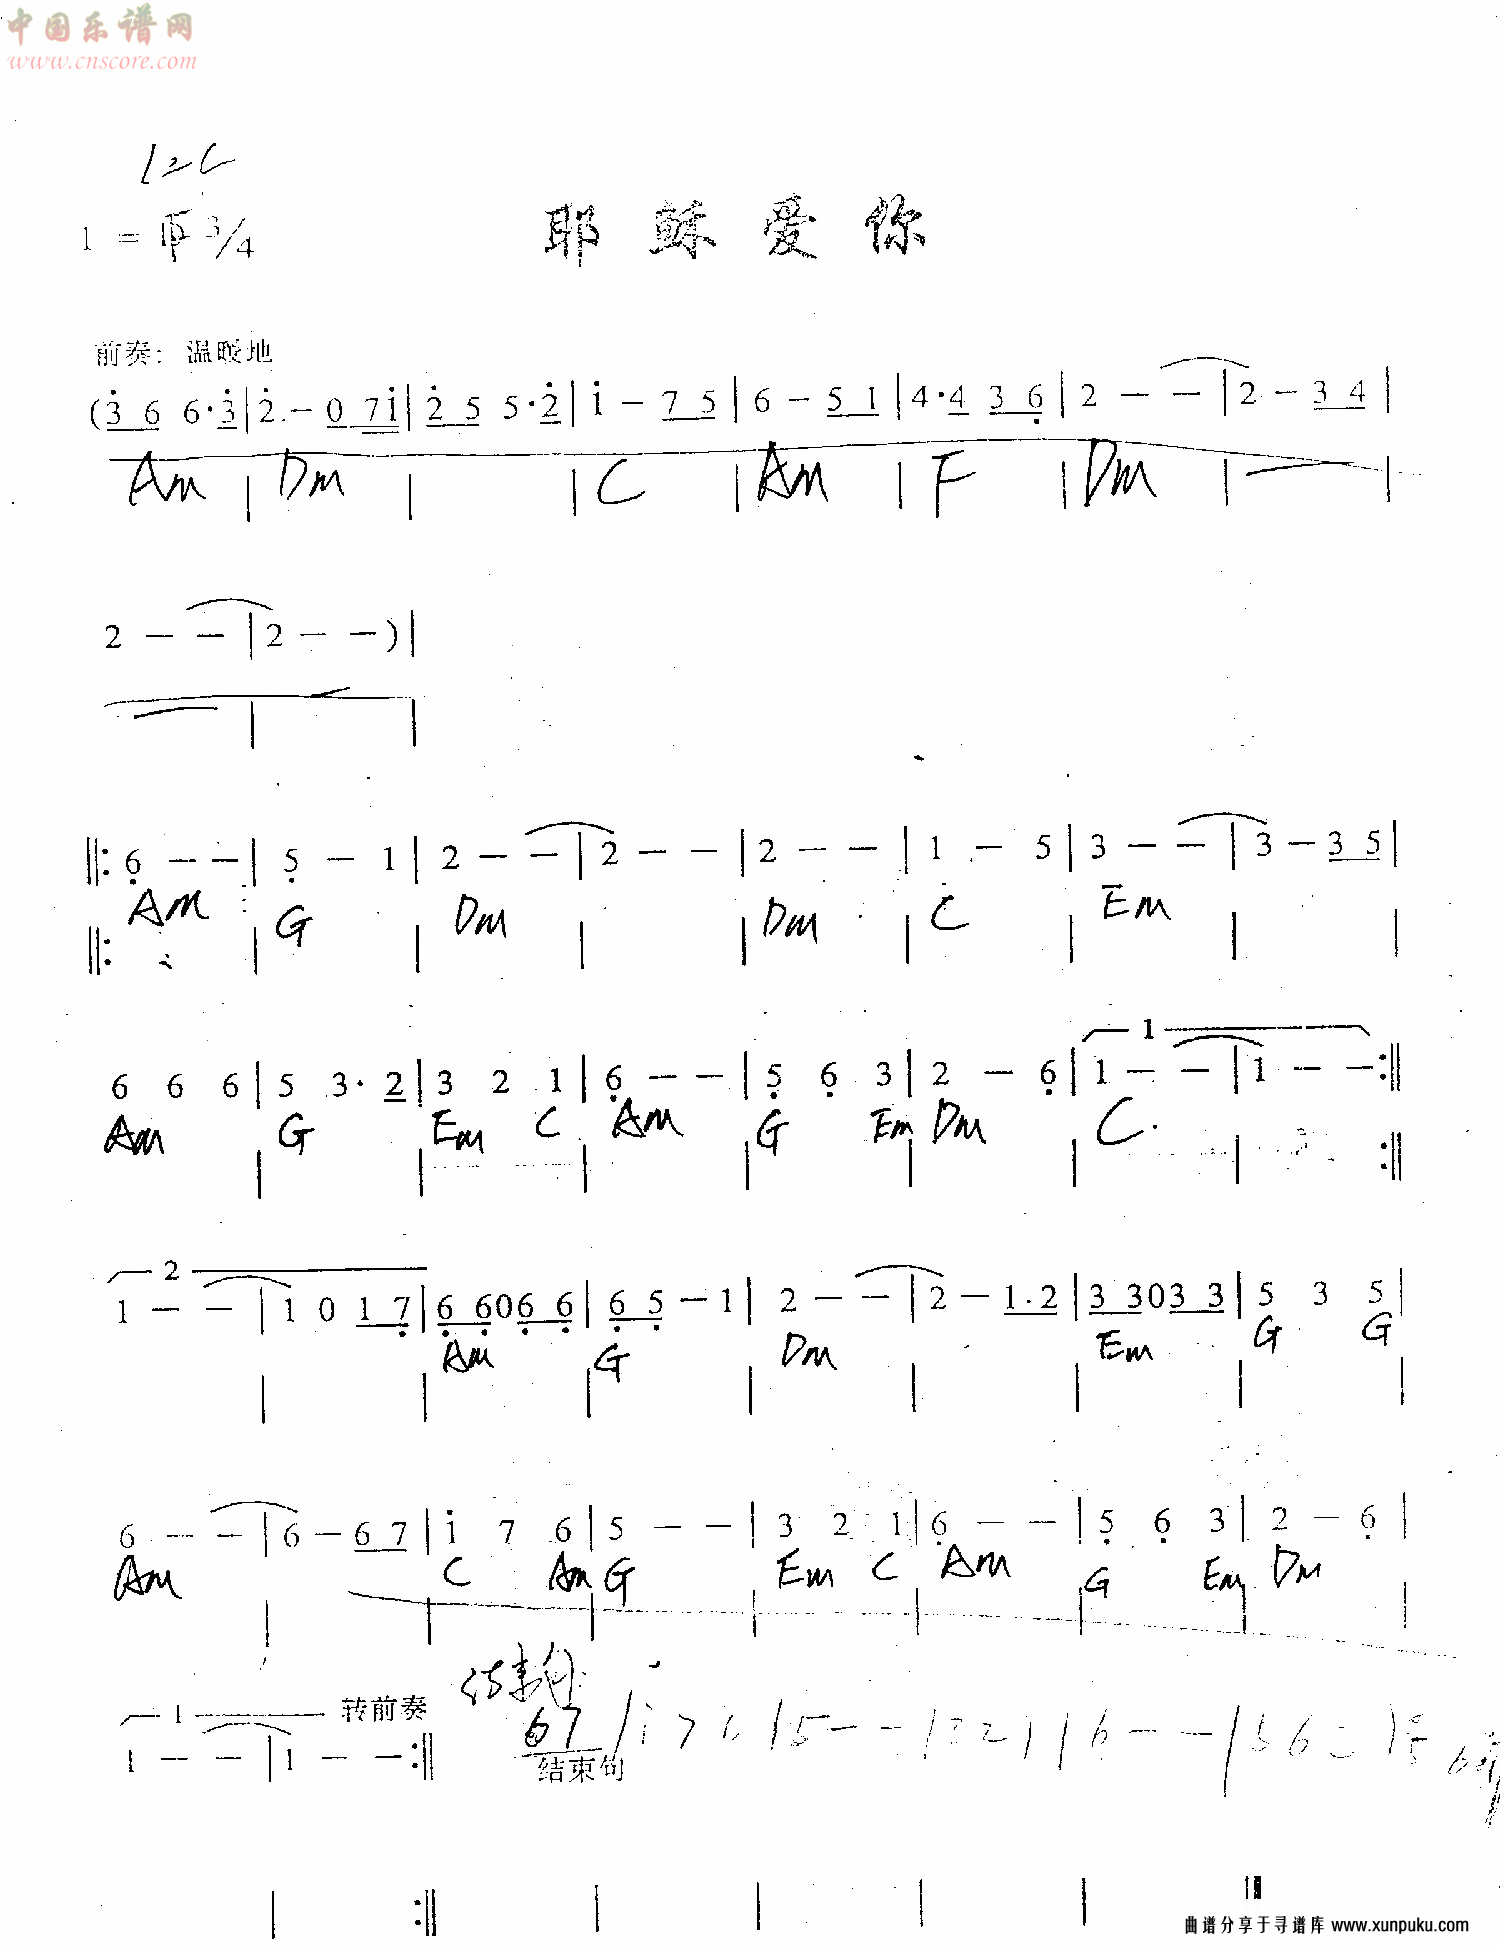 中国乐谱网
www.cnscore.com
1=C
1 = 3/4
耶 稣 爱 你
前奏: 温暖地
(3 6 6·3|2 - 0 7 1|2 5 5·2|1 - 7 5|6 - 5 1|4·4 3 6|2 - -|2 - 3 4|
Am | Dm | | C | Am | F | Dm | — |
2 - -|2 - -)|
||: 6 - -|5 - 1|2 - -|2 - -|2 - -|1 - 5|3 - -|3 - 3 5|
Am G Dm Dm C Em
1
6 6 6|5 3·2|3 2 1|6 - -|5 6 3|2 - 6|1 - -|1 - -:||
Am G Em C Am G Em Dm C
2
1 - -|1 0 1 7|6 6 0 6 6|6 5 - 1|2 - -|2 - 1·2|3 3 0 3 3|5 3 5|
Am G Dm Em G G
6 - -|6 - 6 7|1 7 6|5 - -|3 2 1|6 - -|5 6 3|2 - 6|
Am C Am G Em C Am G Em Dm
1 转前奏 结束句
1 - -|1 - -:|| 6 7 | 1 7 6 | 5 - - | 3 2 1 | 6 - - | 5 6 3 |
结束句
曲谱分享于寻谱库 www.xunpuku.com